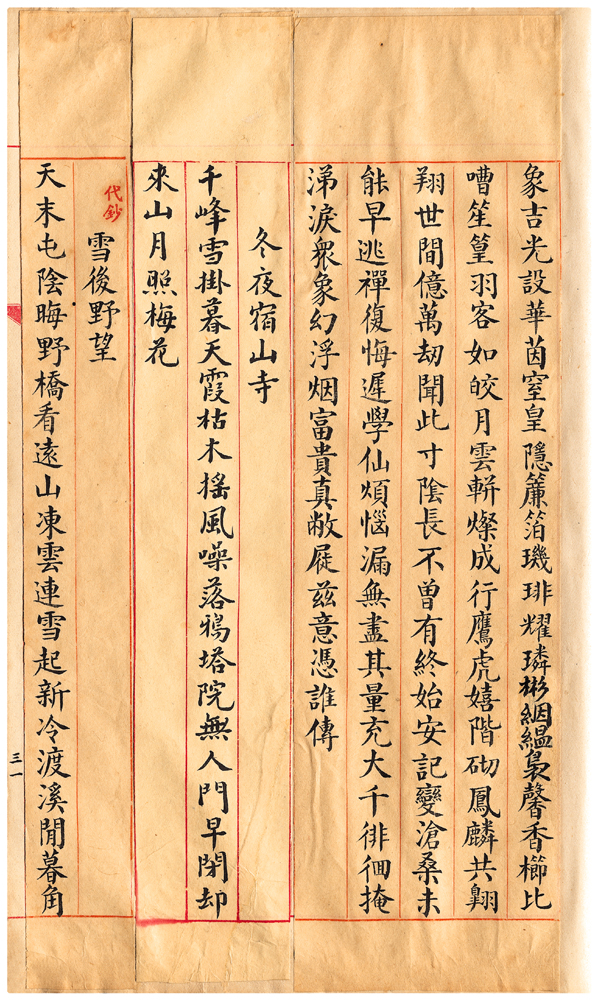 象吉光設華茵窒皇隱簾箔璣琲耀璘彬絪縕裊馨香櫛比
嘈笙篁羽客如皎月雲軿燦成行鷹虎嬉階砌鳳麟共翺
翔世間億萬劫聞此寸陰長不曾有終始安記變滄桑未
能早逃禪復悔遲學仙煩惱漏無盡其量充大千徘徊掩
涕淚衆象幻浮烟富貴真敝屣茲意憑誰傳
冬夜宿山寺
千峰雪掛暮天霞枯木搖風噪落鴉塔院無人門早閉却
來山月照梅花
代鈔
雪後野望
天末屯陰晦野橋看遠山凍雲連雪起新冷渡溪閒暮角
三一